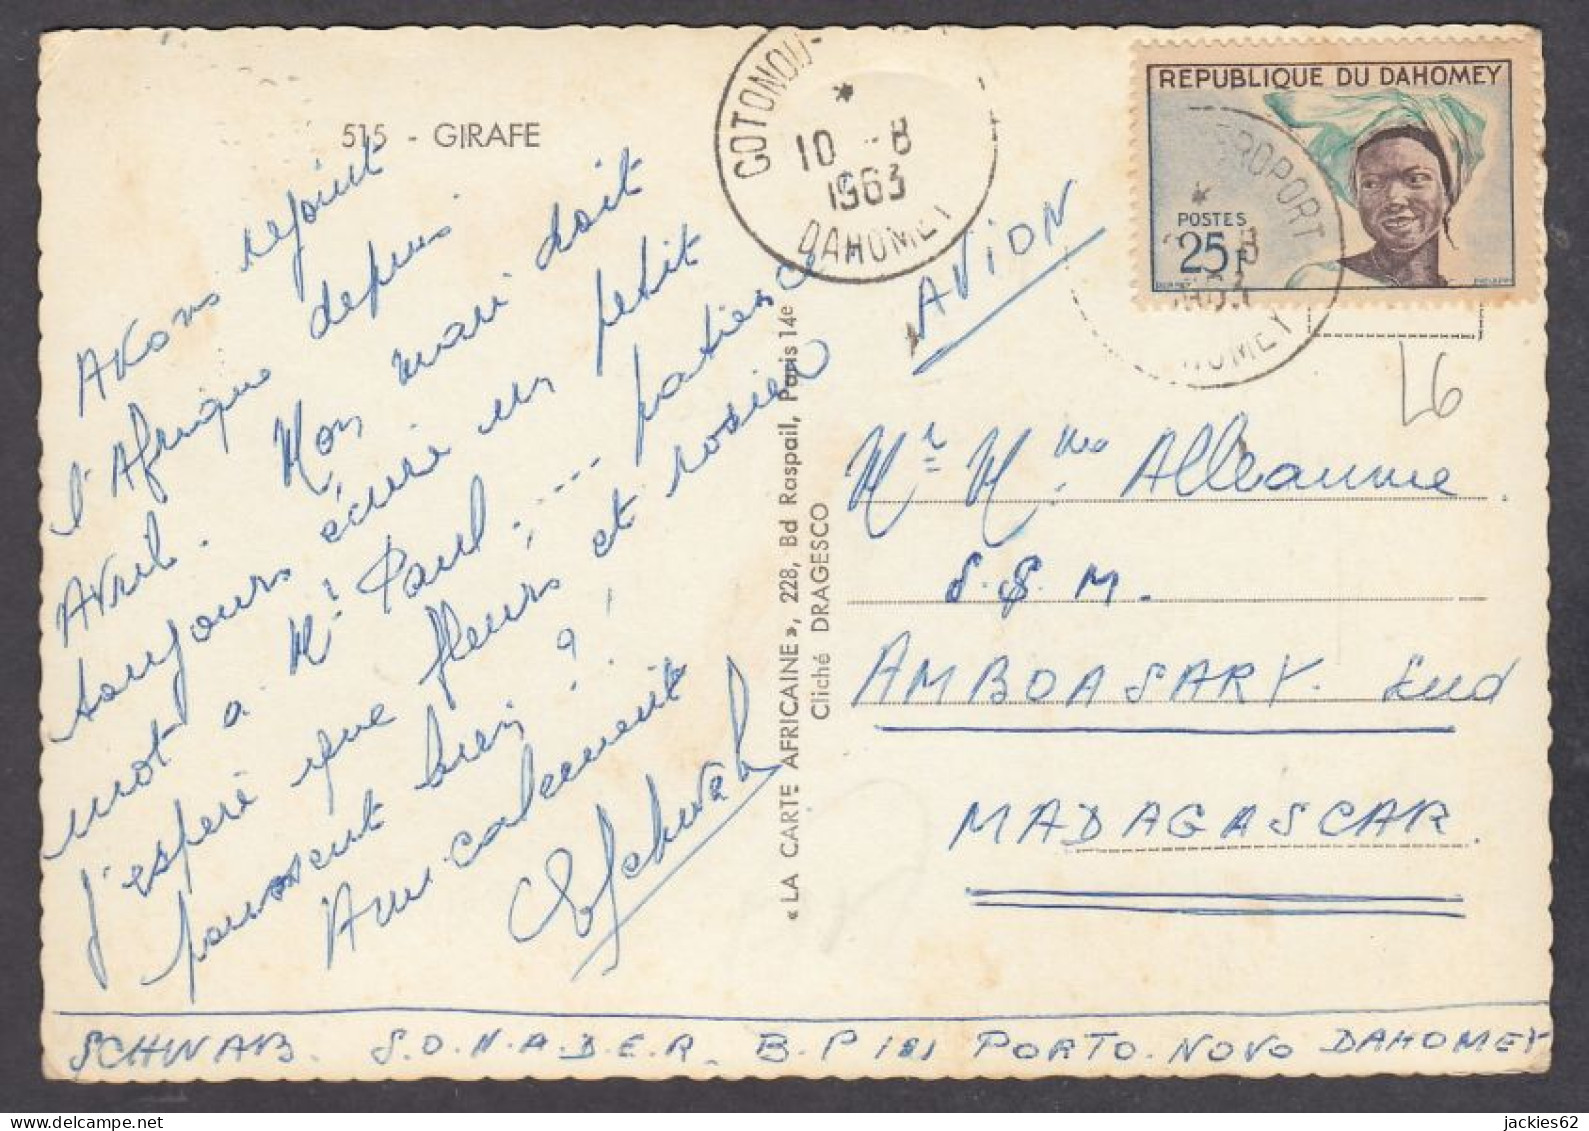 515 - GIRAFE
Avons rejoint
l'Afrique depuis
Avril. Mon mari doit
toujours écrire un petit
mot à Mr Paul, --- patience
j'espère que fleurs et rosier
poussent bien ?
Amicalement
Schwab
« LA CARTE AFRICAINE », 228, Bd Raspail, Paris 14e
Cliché DRAGESCO
COTONOU-
10 -8
1963
DAHOMEY
AVION
REPUBLIQUE DU DAHOMEY
POSTES
25F
AEROPORT
L6
Mr Mme Alleaume
S.S.M.
AMBOASARY. Sud
MADAGASCAR.
SCHWAB. S.O.N.A.D.E.R. B.P 181 PORTO-NOVO DAHOMEY
jackies62